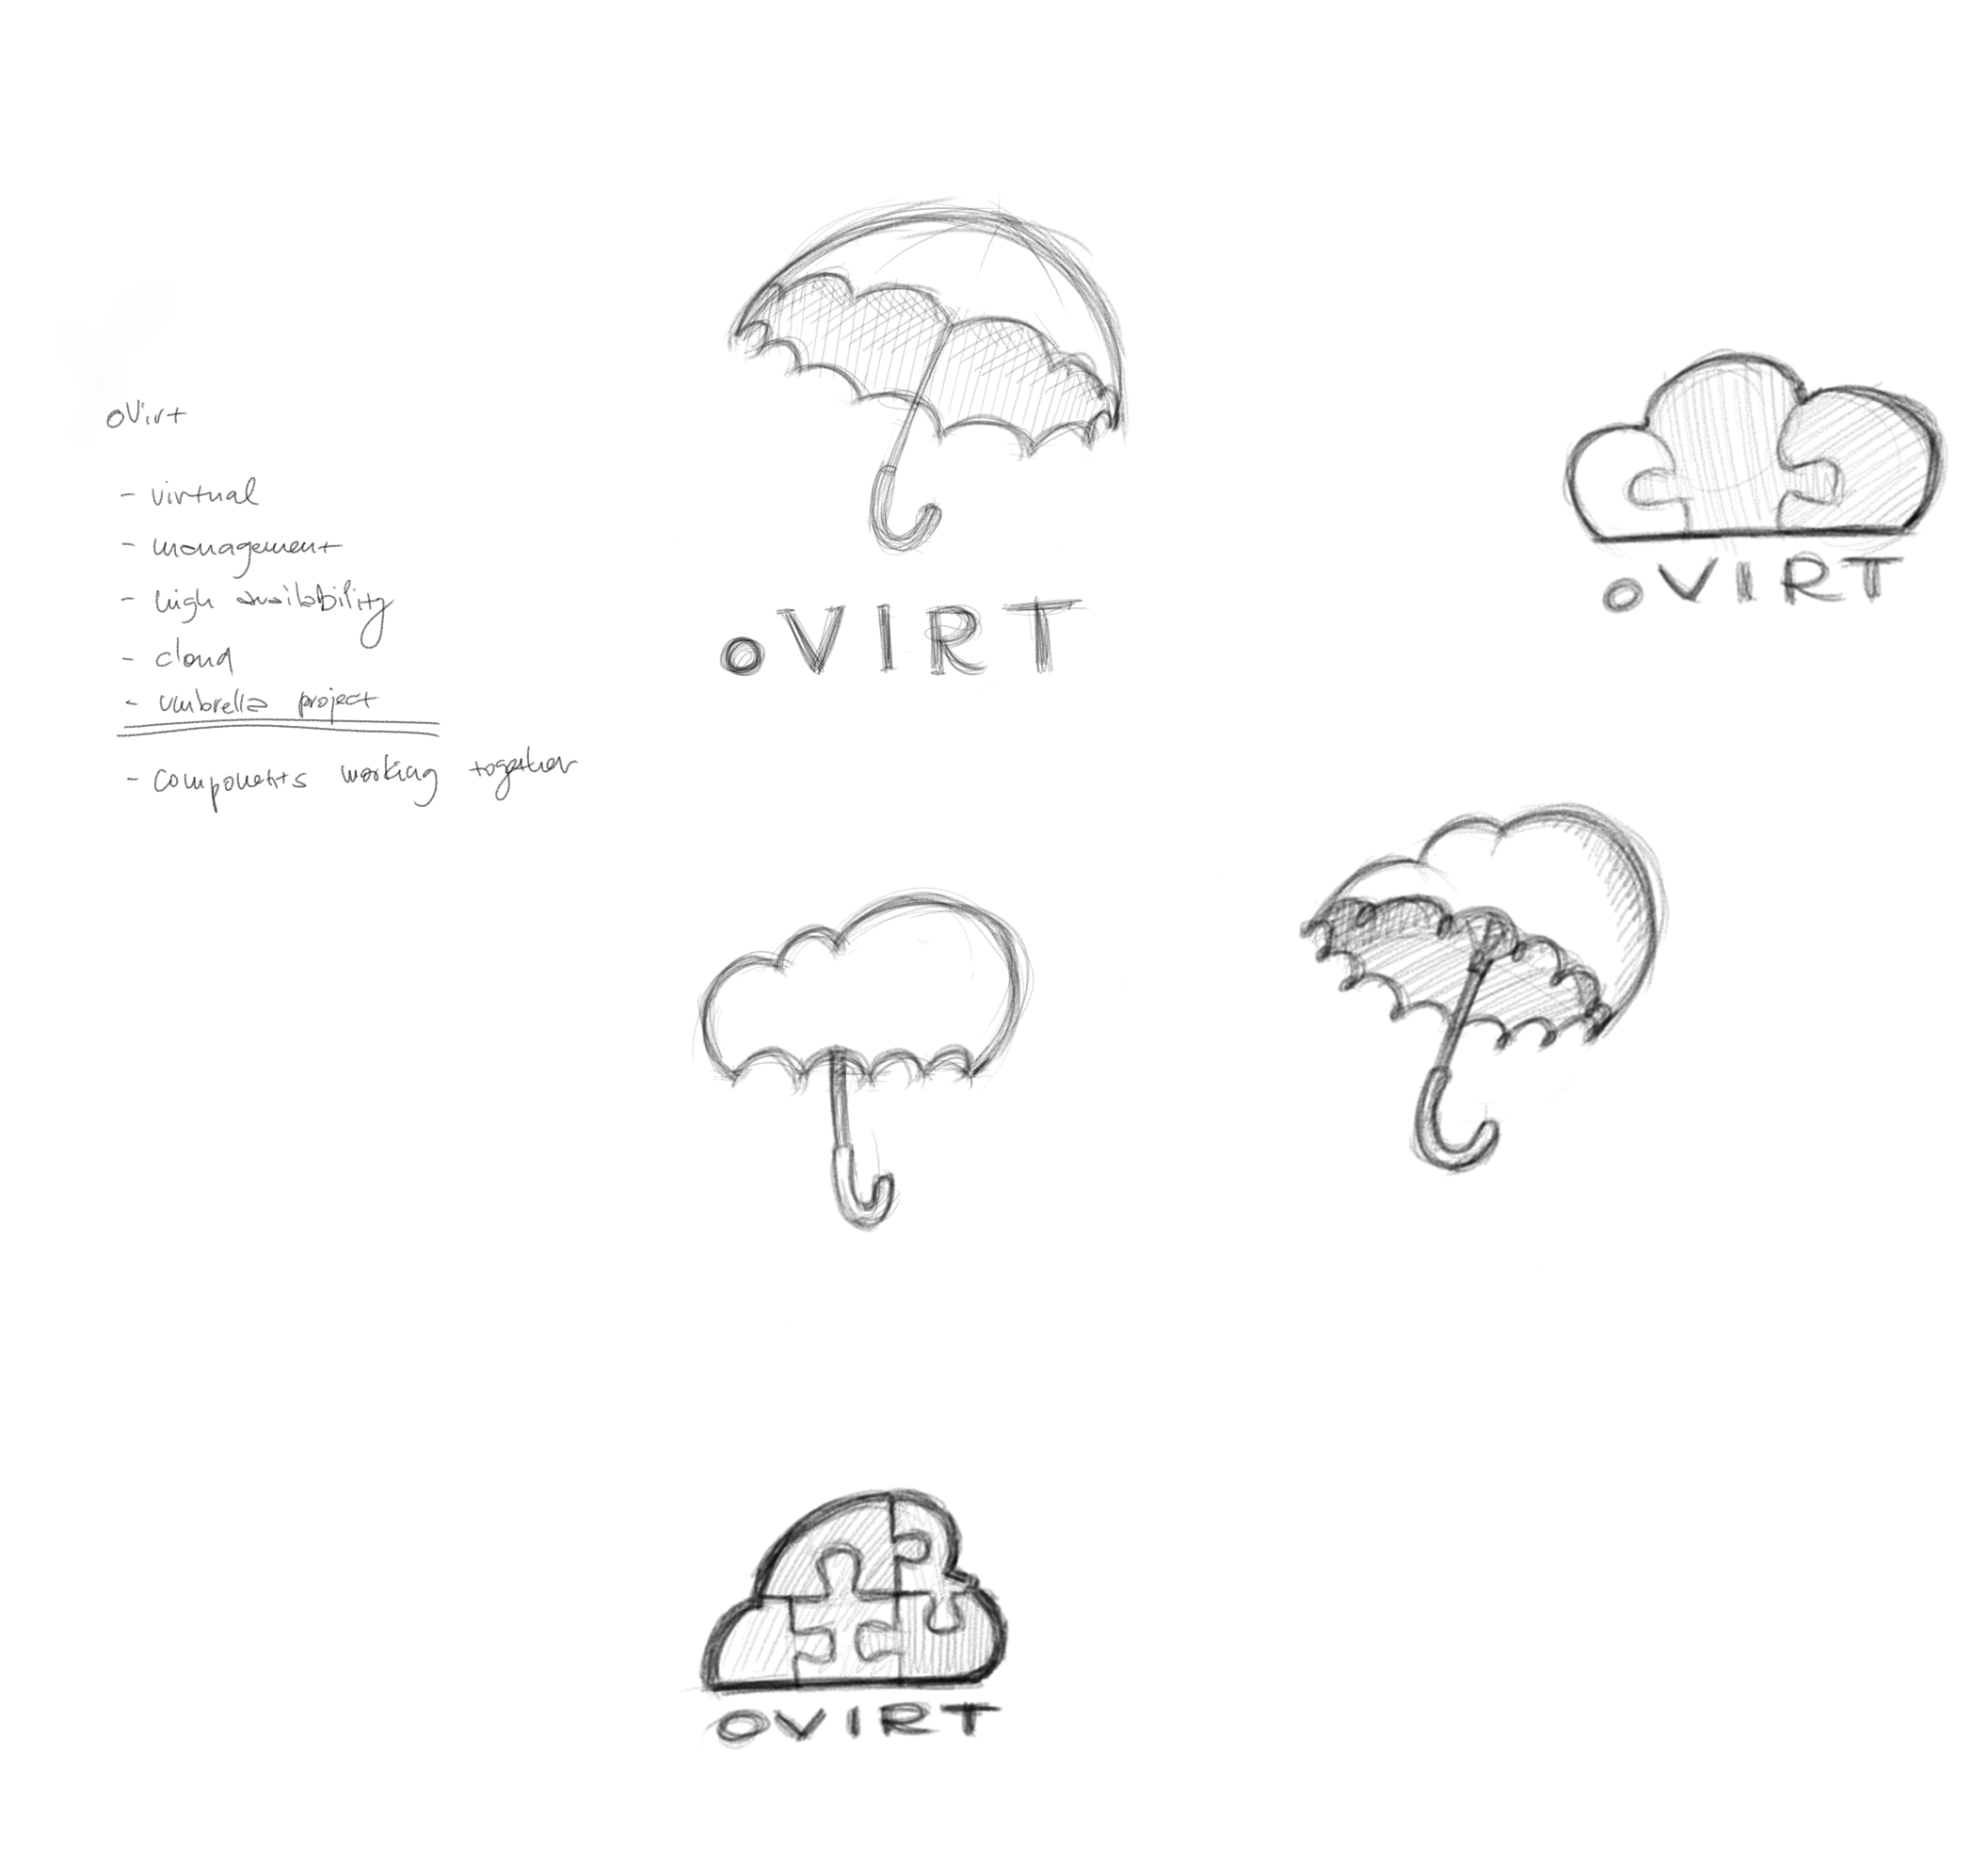 oVirt
- virtual
- management
- high availability
- cloud
- umbrella project
- components working together
oVIRT
oVIRT
oVIRT